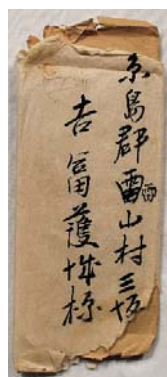 糸島郡雷山村三坂
吉冨護様